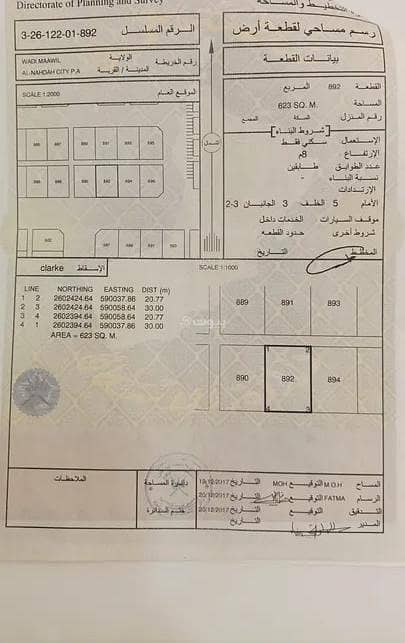 Directorate of Planning and Survey
التخطيط والمساحة
3-26-122-01-892
الرقم المسلسل
رسم مساحي لقطعة أرض
WADI MAAWIL
الولاية
AL-NAHDAH CITY P.A
المدينة / القرية
رقم الخريطة
بيانات القطعة
SCALE 1:2000
الموقع العام
القطعة 892 المربع
المساحة 623 SQ. M.
رقم المنزل السكة المجمع
شروط البناء
الإستعمال سكني فقط
الإرتفاع 8م
عدد الطوابق طابقين
نسبة البناء -
الإرتدادات
الأمام 5 الخلف 3 الجانبان 3-2
موقف السيارات الخدمات داخل
شروط أخرى حدود القطعه
المخطط التاريخ
الشمال
clarke
الإسقاط
SCALE 1:1000
LINE NORTHING EASTING DIST (m)
1 2 2602424.64 590037.86 20.77
2 3 2602424.64 590058.64 30.00
3 4 2602394.64 590058.64 20.77
4 1 2602394.64 590037.86 30.00
AREA = 623 SQ. M.
889 891 893
1 2
890 892 894
4 3
الملاحظات
دائرة المساحة
ختم الدائرة
المساح M.O.H التوقيع MOH التاريخ 19/12/2017
الرسام FATMA التوقيع التاريخ 20/12/2017
التدقيق التوقيع التاريخ 20/12/2017
المدير التاريخ